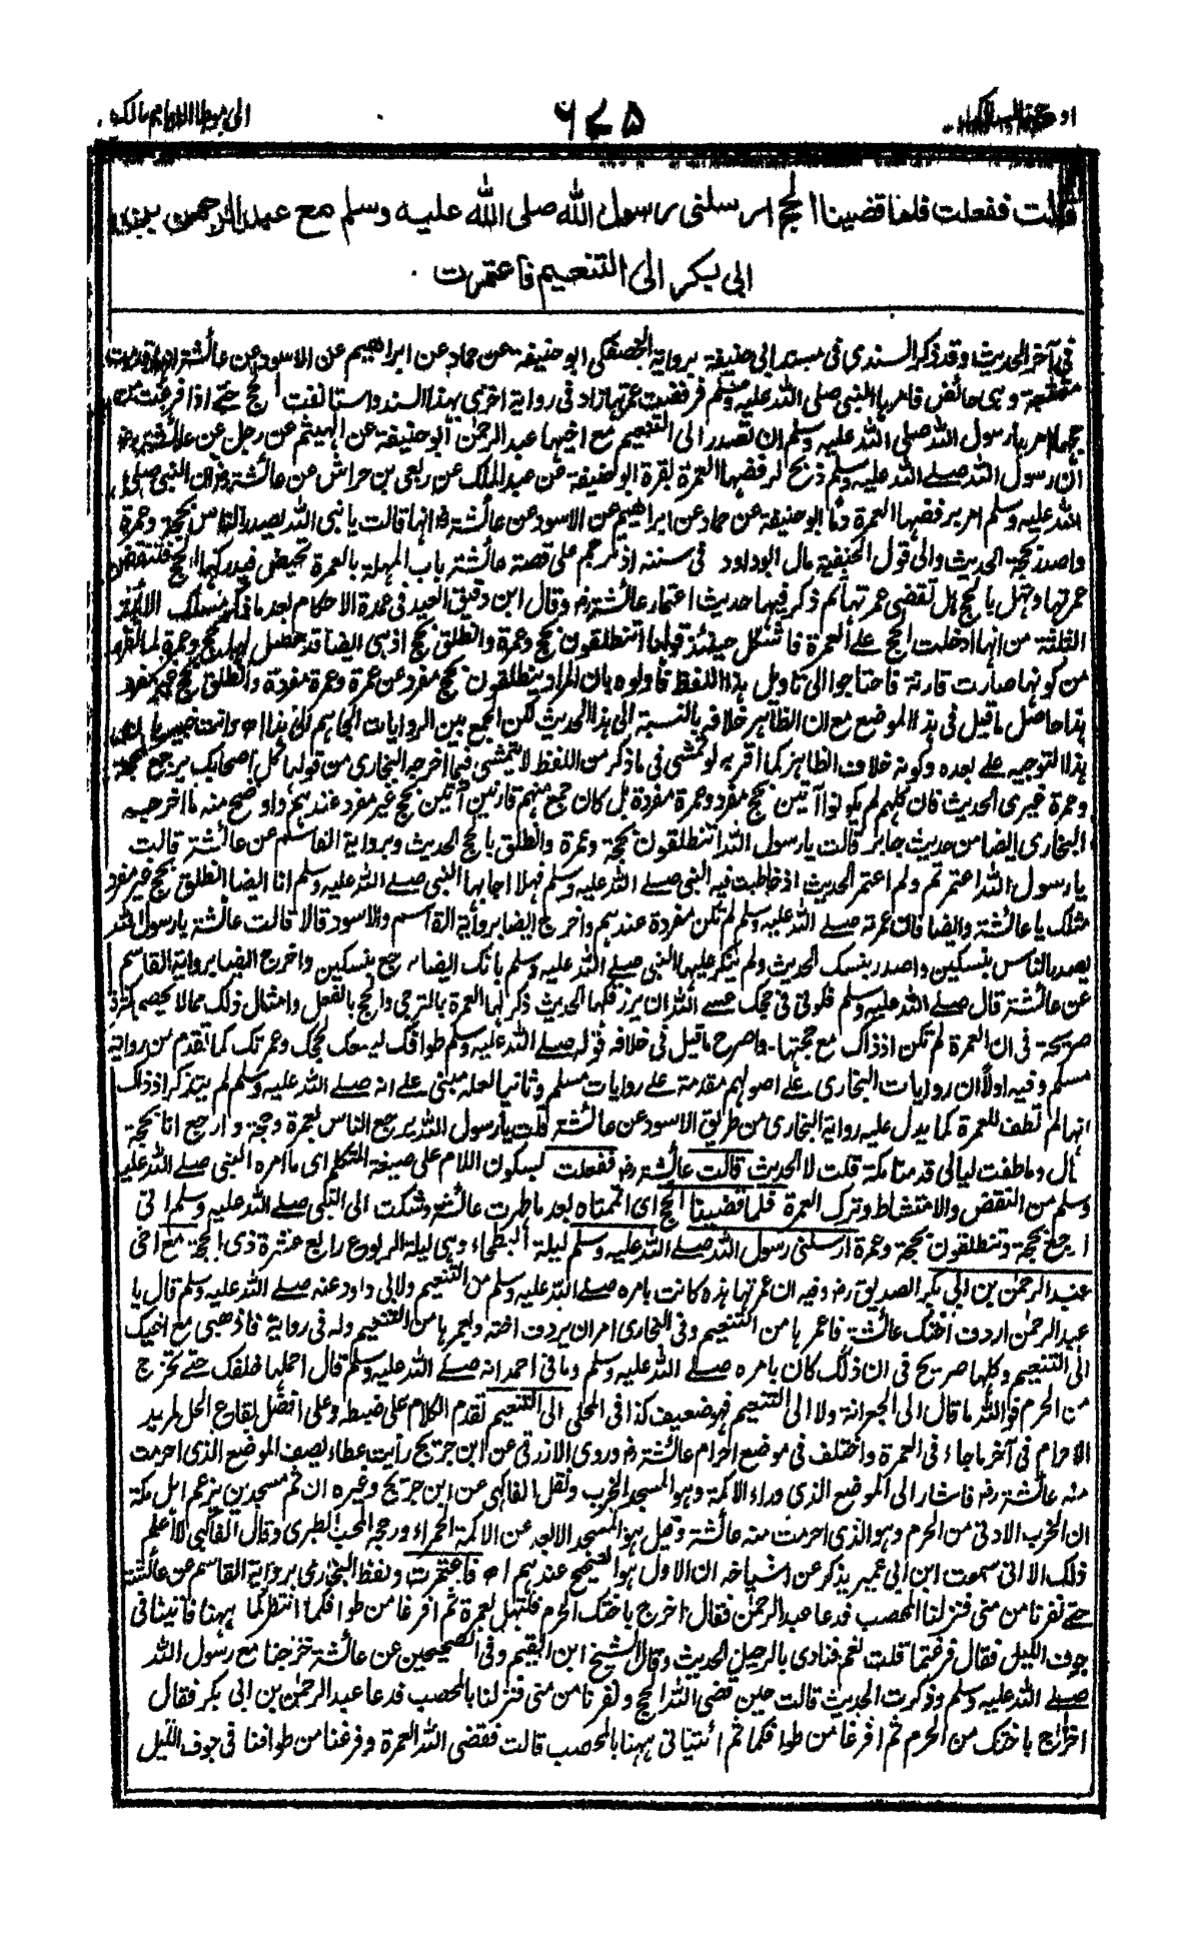 اوجز المسالك ٦٧٥ الى موطا الامام مالك
قالت ففعلت فلما قضينا الحج ارسلنى رسول الله صلى الله عليه وسلم مع عبد الرحمن بن
ابى بكر الى التنعيم فاعتمرت
فى آخر الحديث وقد ذكر السندى فى مسند ابى حنيفة برواية الحصفكى ابو حنيفة عن حماد عن ابراهيم عن الاسود عن عائشة انها قدمت
متمتعة وهى حائض فامرها النبى صلى الله عليه وسلم فرفضت عمرتها زاد فى رواية اخرى بهذا السند واستانفت الحج حتے اذا فرغت من
حجها امرها رسول الله صلى الله عليه وسلم ان تصدر الى التنعيم مع اخيها عبد الرحمٰن ابو حنيفة عن الهيثم عن رجل عن عائشة رضـ
ان رسول الله صلے الله عليه وسلم ذبح لرفضها العمرة بقرة ابو حنيفة عن عبد الملك عن ربعى بن حراش عن عائشة رضـ ان النبى صلى
الله عليه وسلم امر برفضها العمرة دما ابو حنيفة عن حماد عن ابراهيم عن الاسود عن عائشة رضـ انها قالت يا نبى الله يصدر الناس بحجة وعمرة
واصدر بحجة الحديث والى قول الحنفية مال ابو داود فى سننه اذ ترجم على قصة عائشة باب المهلة بالعمرة تحيض فيدركها الحج فتنقض
عمرتها وتهل بالحج هل تقضى عمرتها ثم ذكر فيها حديث اعتمار عائشة رضـ وقال ابن دقيق العيد فى عمدة الاحكام بعد ما ذكر مسلك الائمة
الثلثة من انها ادخلت الحج على العمرة فاشكل حينئذ قولها اتنطلقون بحج وعمرة وانطلق بحج اذ هى ايضا قد حصل لها حج وعمرة لما تقرر
من كونها صارت قارنة فاحتاجوا الى تاويل هذا اللفظ فاولوه بان المراد ينطلقون بحج مفرد عن عمرة وعمرة مفردة وانطلق بحج غير مفرد
هذا حاصل ما قيل فى هذا الموضع مع ان الظاهر خلافه بالنسبة الى هذا الحديث لكن الجمع بين الروايات الجاهم الى هذا اھ وانت خبير بان
هذا التوجيه علے بعده وكونه خلاف الظاهر كما اقر به لو تمشى فى ما ذكر من اللفظ لا يتمشى فيما اخرجه البخارى من قولها كل اصحابك يرجع بحجة
وعمرة غيرى الحديث فان كلهم لم يكونوا آتين بحج مفرد وعمرة مفردة بل كان جمع منهم قارنين آتين بحج غير مفرد عندهم واوضح منه ما اخرجه
البخارى ايضا من حديث جابر قالت يا رسول الله اتنطلقون بحجة وعمرة وانطلق بالحج الحديث وبرواية القاسم عن عائشة قالت
يا رسول الله اعتمرتم ولم اعتمر الحديث اذ خاطبت فيه النبى صلے الله عليه وسلم فهلا اجابها النبى صلے الله عليه وسلم انا ايضا انطلق بحج غير مفرد
مثلك يا عائشة وايضا فان عمرته صلے الله عليه وسلم لم تكن مفردة عندهم واخرج ايضا برواية القاسم والاسود قالا قالت عائشة يا رسول الله
يصدر الناس بنسكين واصدر بنسك الحديث ولم ينكر عليها النبى صلے الله عليه وسلم بانك ايضا ترجع بنسكين واخرج ايضا برواية القاسم
عن عائشة قال صلے الله عليه وسلم فكونى فى حجك عسے الله ان يرزقكها الحديث ذكر لها العمرة بالترجى والحج بالفعل وامثال ذلك مما لا يحصى كثرة
صريحة فى ان العمرة لم تكن اذ ذاك مع حجتها۔ واصرح ما قيل فى خلافه قوله صلے الله عليه وسلم طوافك ليسعك لحجك وعمرتك كما تقدم من رواية
مسلم وفيه اولا ان روايات البخارى علے اصولهم مقدمة علے روايات مسلم وثانيا لعله مبنى علے انه صلے الله عليه وسلم لم يتذكر اذ ذاك
انها لم تطف للعمرة كما يدل عليه رواية البخارى من طريق الاسود عن عائشة قلت يا رسول الله يرجع الناس بعمرة وحجة وارجع انا بحجة
قال وما طفت ليالى قدمنا مكة قلت لا الحديث قالت عائشة رضـ ففعلت بسكون اللام على صيغة المتكلم اى ما امره النبى صلے الله عليه
وسلم من النقض والامتشاط وترك العمرة فلما قضينا الحج اى اتممناه بعد ما طهرت عائشة وشكت الى النبى صلے الله عليه وسلم انى
ارجع بحجة وتنطلقون بحجة وعمرة ارسلنى رسول الله صلے الله عليه وسلم ليلة البطحاء وهى ليلة الربوع رابع عشرة ذى الحجة مع اخى
عبد الرحمٰن بن ابى بكر الصديق رضـ وفيه ان عمرتها هذه كانت بامره صلے الله عليه وسلم من التنعيم ولابى داود عنه صلے الله عليه وسلم قال يا
عبد الرحمٰن اردف اختك عائشة فاعمرها من التنعيم وفى البخارى امر ان يردف اخته وليعمرها من التنعيم وله فى رواية فاذهبى مع اخيك
الى التنعيم وكلها صريح فى ان ذلك كان بامره صلے الله عليه وسلم وما فى احمد انه صلے الله عليه وسلم قال احملها خلفك حتے تخرج
من الحرم فوالله ما قال الى الجعرانة ولا الى التنعيم فهو ضعيف كذا فى المحلى الى التنعيم تقدم الكلام على ضبطه وعلى افضل بقاع الحل لمريد
الاحرام فى آخر ما جاء فى العمرة واختلف فى موضع احرام عائشة رضـ وروى الازرقى عن ابن جريج رأيت عطاء يصف الموضع الذى احرمت
منه عائشة رضـ فاشار الى الموضع الذى وراء الاكمة وهو المسجد الخرب ونقل الفاكهى عن ابن جريج وغيره ان ثم مسجدين يزعم اهل مكة
ان الخرب الادنى من الحرم وهو الذى احرمت منه عائشة وقيل هو المسجد الابعد عن الاكمة الحمراء ورجحه المحب الطبرى وقال الفاكهى لا اعلم
ذلك الا انى سمعت ابن ابى عمير يذكر عن اشياخه ان الاول هو الصحيح عندهم اھ فاعتمرت ولفظ البخارى برواية القاسم عن عائشة
حتے نفرنا من منى فنزلنا المحصب فدعا عبد الرحمٰن فقال اخرج باختك الحرم فلتهل بعمرة ثم افرغا من طوافكما انتظركما ههنا فاتينا فى
جوف الليل فقال فرغتما قلت نعم فنادى بالرحيل الحديث وقال الشيخ ابن القيم وفى الصحيحين عن عائشة خرجنا مع رسول الله
صلے الله عليه وسلم وذكرت الحديث قالت حين قضى الله الحج ونفرنا من منى فنزلنا بالمحصب فدعا عبد الرحمٰن بن ابى بكر فقال
اخرج باختك من الحرم ثم افرغا من طوافكما ثم ائتيانى ههنا بالمحصب قالت فقضى الله العمرة وفرغنا من طوافنا فى جوف الليل